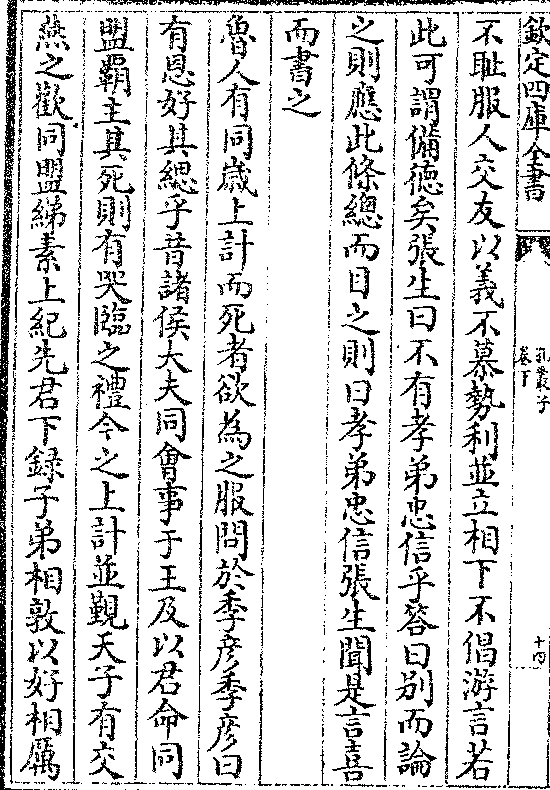 欽定四庫全書
孔叢子
卷下
十四
不耻服人交友以義不慕勢利並立相下不倡游言若
此可謂備德矣張生曰不有孝弟忠信乎答曰别而論
之則應此條總而目之則曰孝弟忠信張生聞是言喜
而書之
魯人有同歲上計而死者欲為之服問於季彦季彦曰
有恩好其緦乎昔諸侯大夫同會事于王及以君命同
盟霸主其死則有哭臨之禮今之上計並覲天子有交
燕之歡同盟綈素上紀先君下録子弟相敦以好相厲